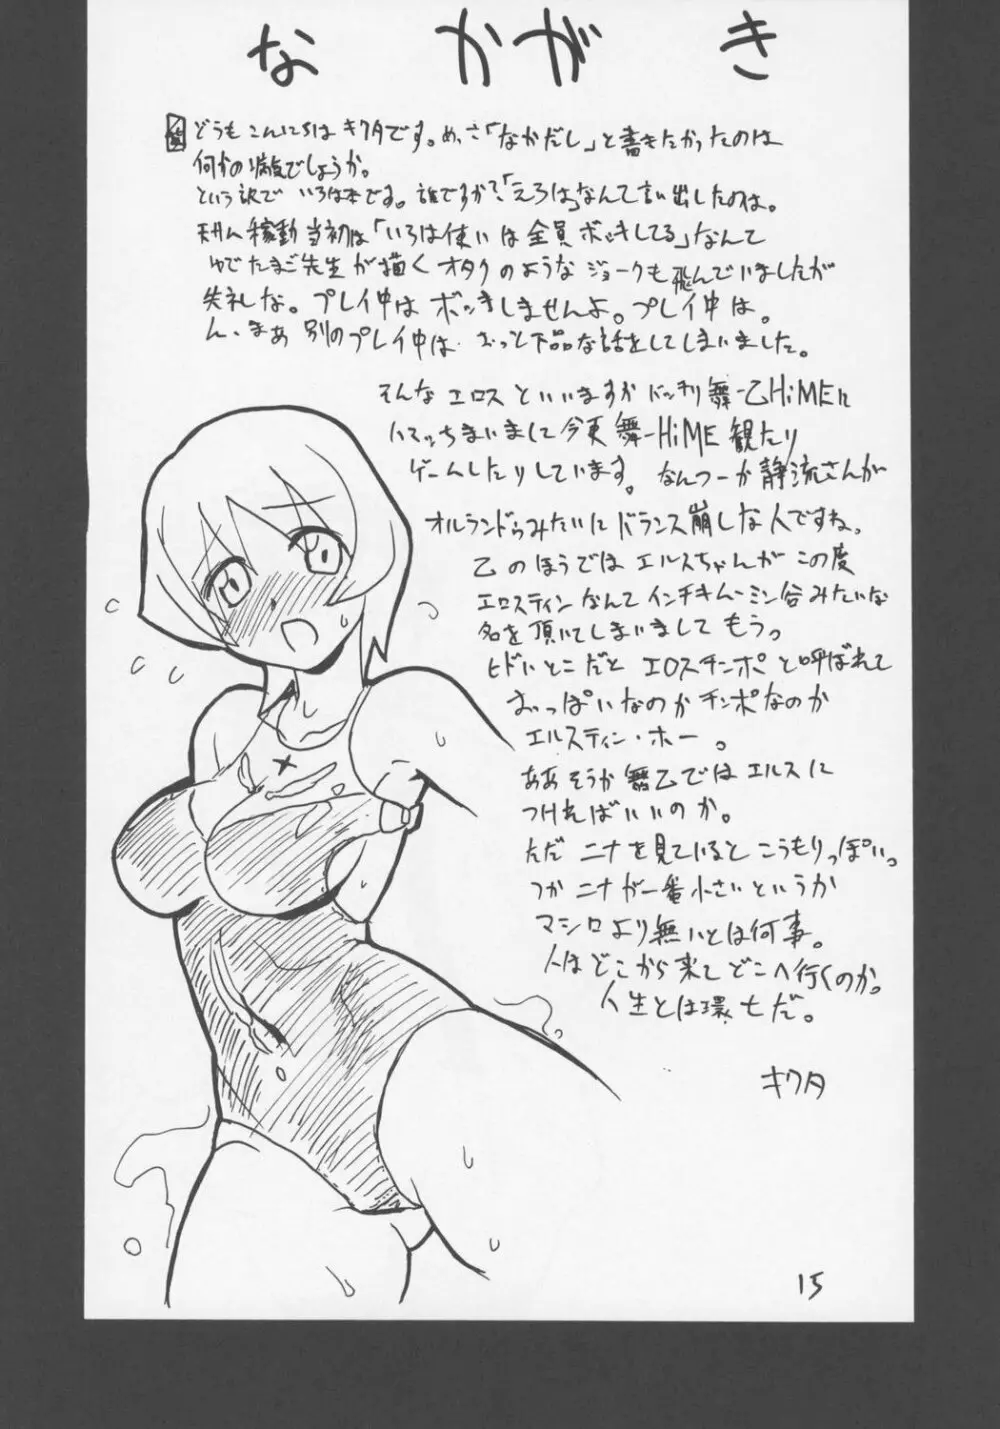 なかがき
どうもこんにちは キクタです。めっさ「なかだし」と書きたかったのは
何かの病気でしょうか。
という訳で いろは本です。誰ですか?「えろは」なんて言い出したのは。
稼動当初は「いろは使いは全員ボッキしてる」なんて
ゆでたまご先生が描くオタクのようなジョークも飛んでいましたが
失礼な。プレイ中はボッきしませんよ。プレイ中は。
ん、まあ 別のプレイ中は‥おっと下品な話をしてしまいました。
そんなエロスといいますか ドッキリ舞-乙HiMEに
ハマっちまいまして今更 舞-HiME 観たり
ゲームしたりしています。なんつーか静流さんが
オルランドゥみたいにバランス崩しな人ですね。
乙のほうでは エルスちゃんが この度
エロスティン なんて インチキムーミン谷みたいな
名を頂いてしまいまして もうっ
ヒドいとこだと エロスチンポ と呼ばれて
おっぱいなのか チンポなのか
エルスティン・ホー 。
ああそうか 舞乙では エルスに
つければいいのか。
ただ ニナを見ていると こうもりっぽいっ
つか ニナが一番小さいというか
マシロより無いとは何事。
人はどこから来て どこへ行くのか。
人生とは環七だ。
キクタ
15